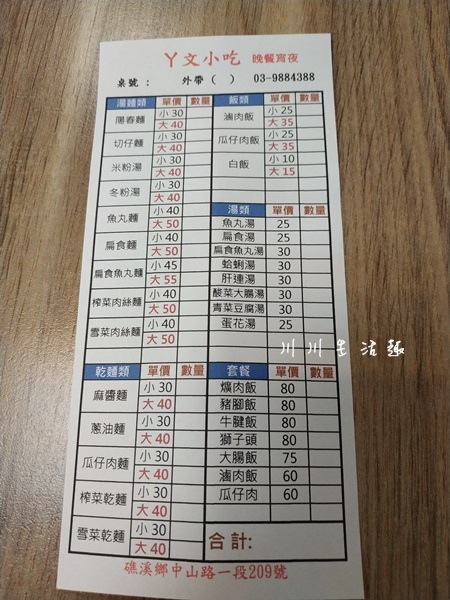 ㄚ文小吃 晚餐宵夜
桌號： 外帶（ ） 03-9884388
湯麵類 單價 數量
陽春麵 小 30
大 40
切仔麵 小 30
大 40
米粉湯 小 30
大 40
冬粉湯 小 30
大 40
魚丸麵 小 40
大 50
扁食麵 小 40
大 50
扁食魚丸麵 小 45
大 55
榨菜肉絲麵 小 40
大 50
雪菜肉絲麵 小 40
大 50
乾麵類 單價 數量
麻醬麵 小 30
大 40
蔥油麵 小 30
大 40
瓜仔肉麵 小 30
大 40
榨菜乾麵 小 30
大 40
雪菜乾麵 小 30
大 40
飯類 單價 數量
滷肉飯 小 25
大 35
瓜仔肉飯 小 25
大 35
白飯 小 10
大 15
湯類 單價 數量
魚丸湯 25
扁食湯 25
扁食魚丸湯 30
蛤蜊湯 30
肝連湯 30
酸菜大腸湯 30
青菜豆腐湯 30
蛋花湯 25
川川生活趣
套餐 單價 數量
爌肉飯 80
豬腳飯 80
牛腱飯 80
獅子頭 80
大腸飯 75
滷肉飯 60
瓜仔肉 60
合計:
礁溪鄉中山路一段209號